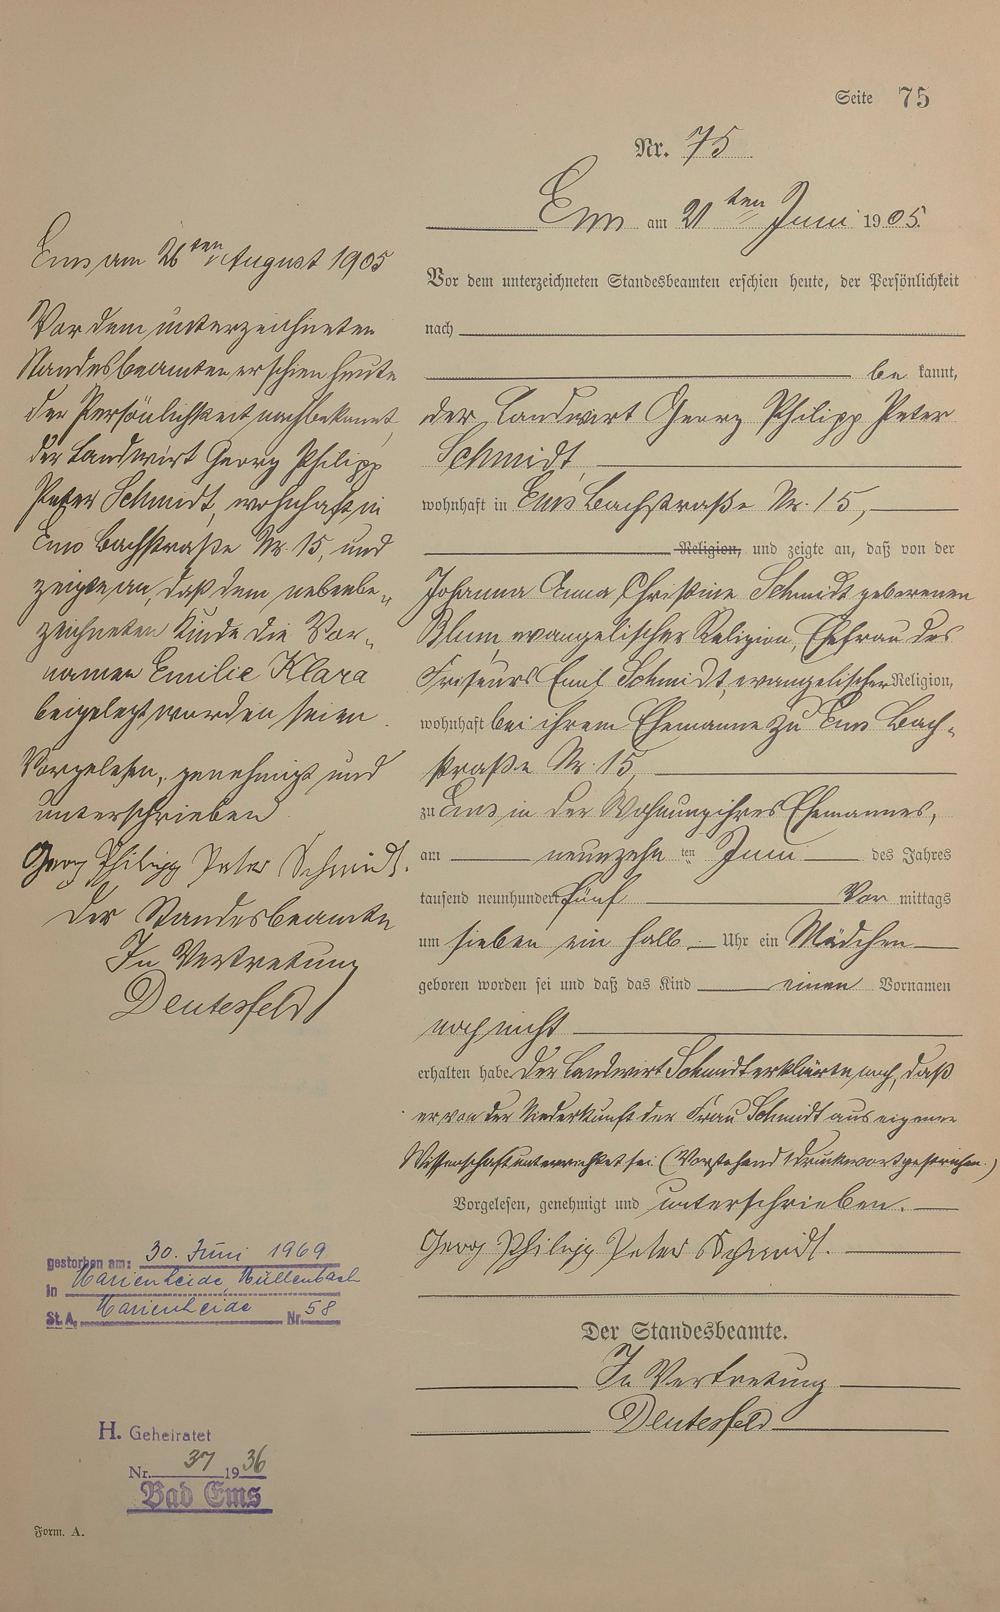 Seite 75
Nr. 75
Ems am 21ten Juni 1905.
Vor dem unterzeichneten Standesbeamten erschien heute, der Persönlichkeit
nach
be kannt,
der Landwirt Georg Philipp Peter
Schmidt
wohnhaft in Ems Bachstraße Nr. 15,
Religion, und zeigte an, daß von der
Johanna Anna Christine Schmidt geborenen
Blum, evangelischer Religion, Ehefrau des
Friseurs Emil Schmidt, evangelischer Religion,
wohnhaft bei ihrem Ehemanne zu Ems Bach-
straße Nr. 15,
zu Ems in der Wohnung ihres Ehemannes,
am neunzehn ten Juni des Jahres
tausend neunhundert fünf Vor mittags
um sieben ein halb Uhr ein Mädchen
geboren worden sei und daß das Kind einen Vornamen
noch nicht
erhalten habe. Der Landwirt Schmidt erklärte noch, daß
er von der Niederkunft der Frau Schmidt aus eigener
Wissenschaft unterrichtet sei. (Vorstehend 1 Druckwort gestrichen.)
Vorgelesen, genehmigt und unterschrieben.
Georg Philipp Peter Schmidt.
Der Standesbeamte.
In Vertretung
Deutesfeld
Ems am 26ten August 1905
Vor dem unterzeichneten
Standesbeamten erschien heute
der Persönlichkeit nach bekannt,
der Landwirt Georg Philipp
Peter Schmidt, wohnhaft in
Ems Bachstraße Nr. 15, und
zeigte an, daß dem nebenbe-
zeichneten Kinde die Vor-
namen Emilie Klara
beigelegt worden seien.
Vorgelesen, genehmigt und
unterschrieben
Georg Philipp Peter Schmidt.
Der Standesbeamte
In Vertretung
Deutesfeld
gestorben am: 30. Juni 1969
in Marienheide, Müllenbach
St.A. Marienheide Nr. 58
H. Geheiratet
Nr. 37 1936
Bad Ems
Form. A.